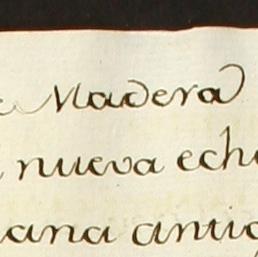 e Madera
nueva echa
ana antig